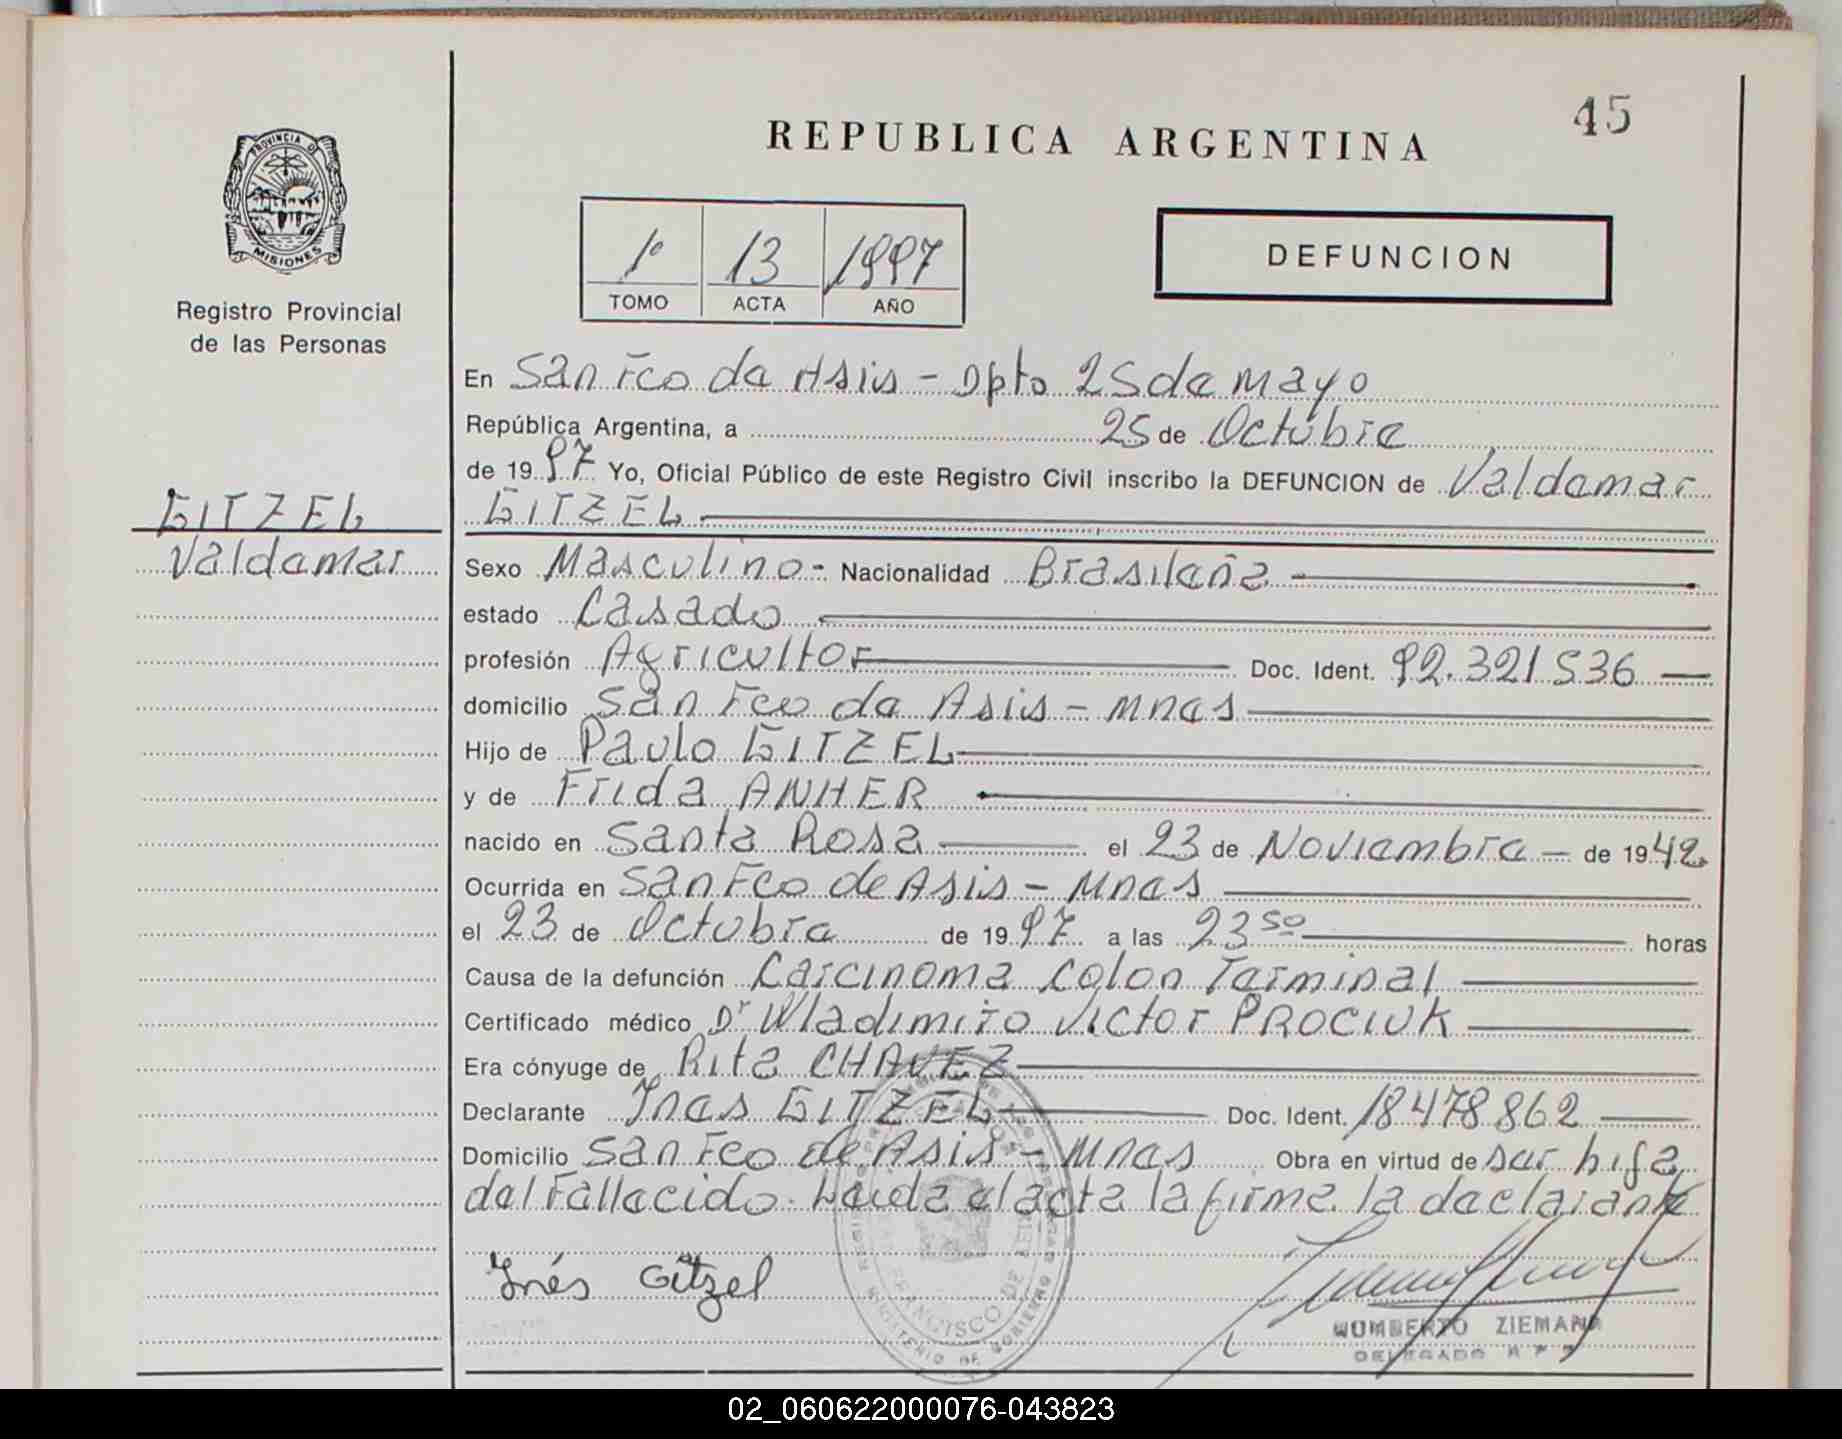 45
REPUBLICA ARGENTINA
PROVINCIA DE
MISIONES
Registro Provincial
de las Personas
1º 13 1997
TOMO ACTA AÑO
DEFUNCION
En San Fco de Asis - Dpto 25 de Mayo
República Argentina, a 25 de Octubre
de 1997 Yo, Oficial Público de este Registro Civil inscribo la DEFUNCION de Valdemar
GITZEL
GITZEL
Valdemar
Sexo Masculino - Nacionalidad Brasileña
estado Casado
profesión Agricultor Doc. Ident. 92.321536
domicilio San Fco de Asis - Mnes
Hijo de Paulo GITZEL
y de Frida ANHER
nacido en Santa Rosa el 23 de Noviembre de 1942
Ocurrida en San Fco de Asis - Mnes
el 23 de Octubre de 1997 a las 23 50 horas
Causa de la defunción Carcinoma Colon Terminal
Certificado médico Dr Wladimiro Victor PROCIUK
Era cónyuge de Rita CHAVEZ
Declarante Ines GITZEL Doc. Ident. 18478862
Domicilio San Fco de Asis - Mnes Obra en virtud de ser hija
del Fallecido. Leida el acta la firma la declarante
Inés Gitzel
FRANCISCO DE
MINISTERIO DE GOBIERNO
HUMBERTO ZIEMANN
DELEGADO R P P
02_060622000076-043823